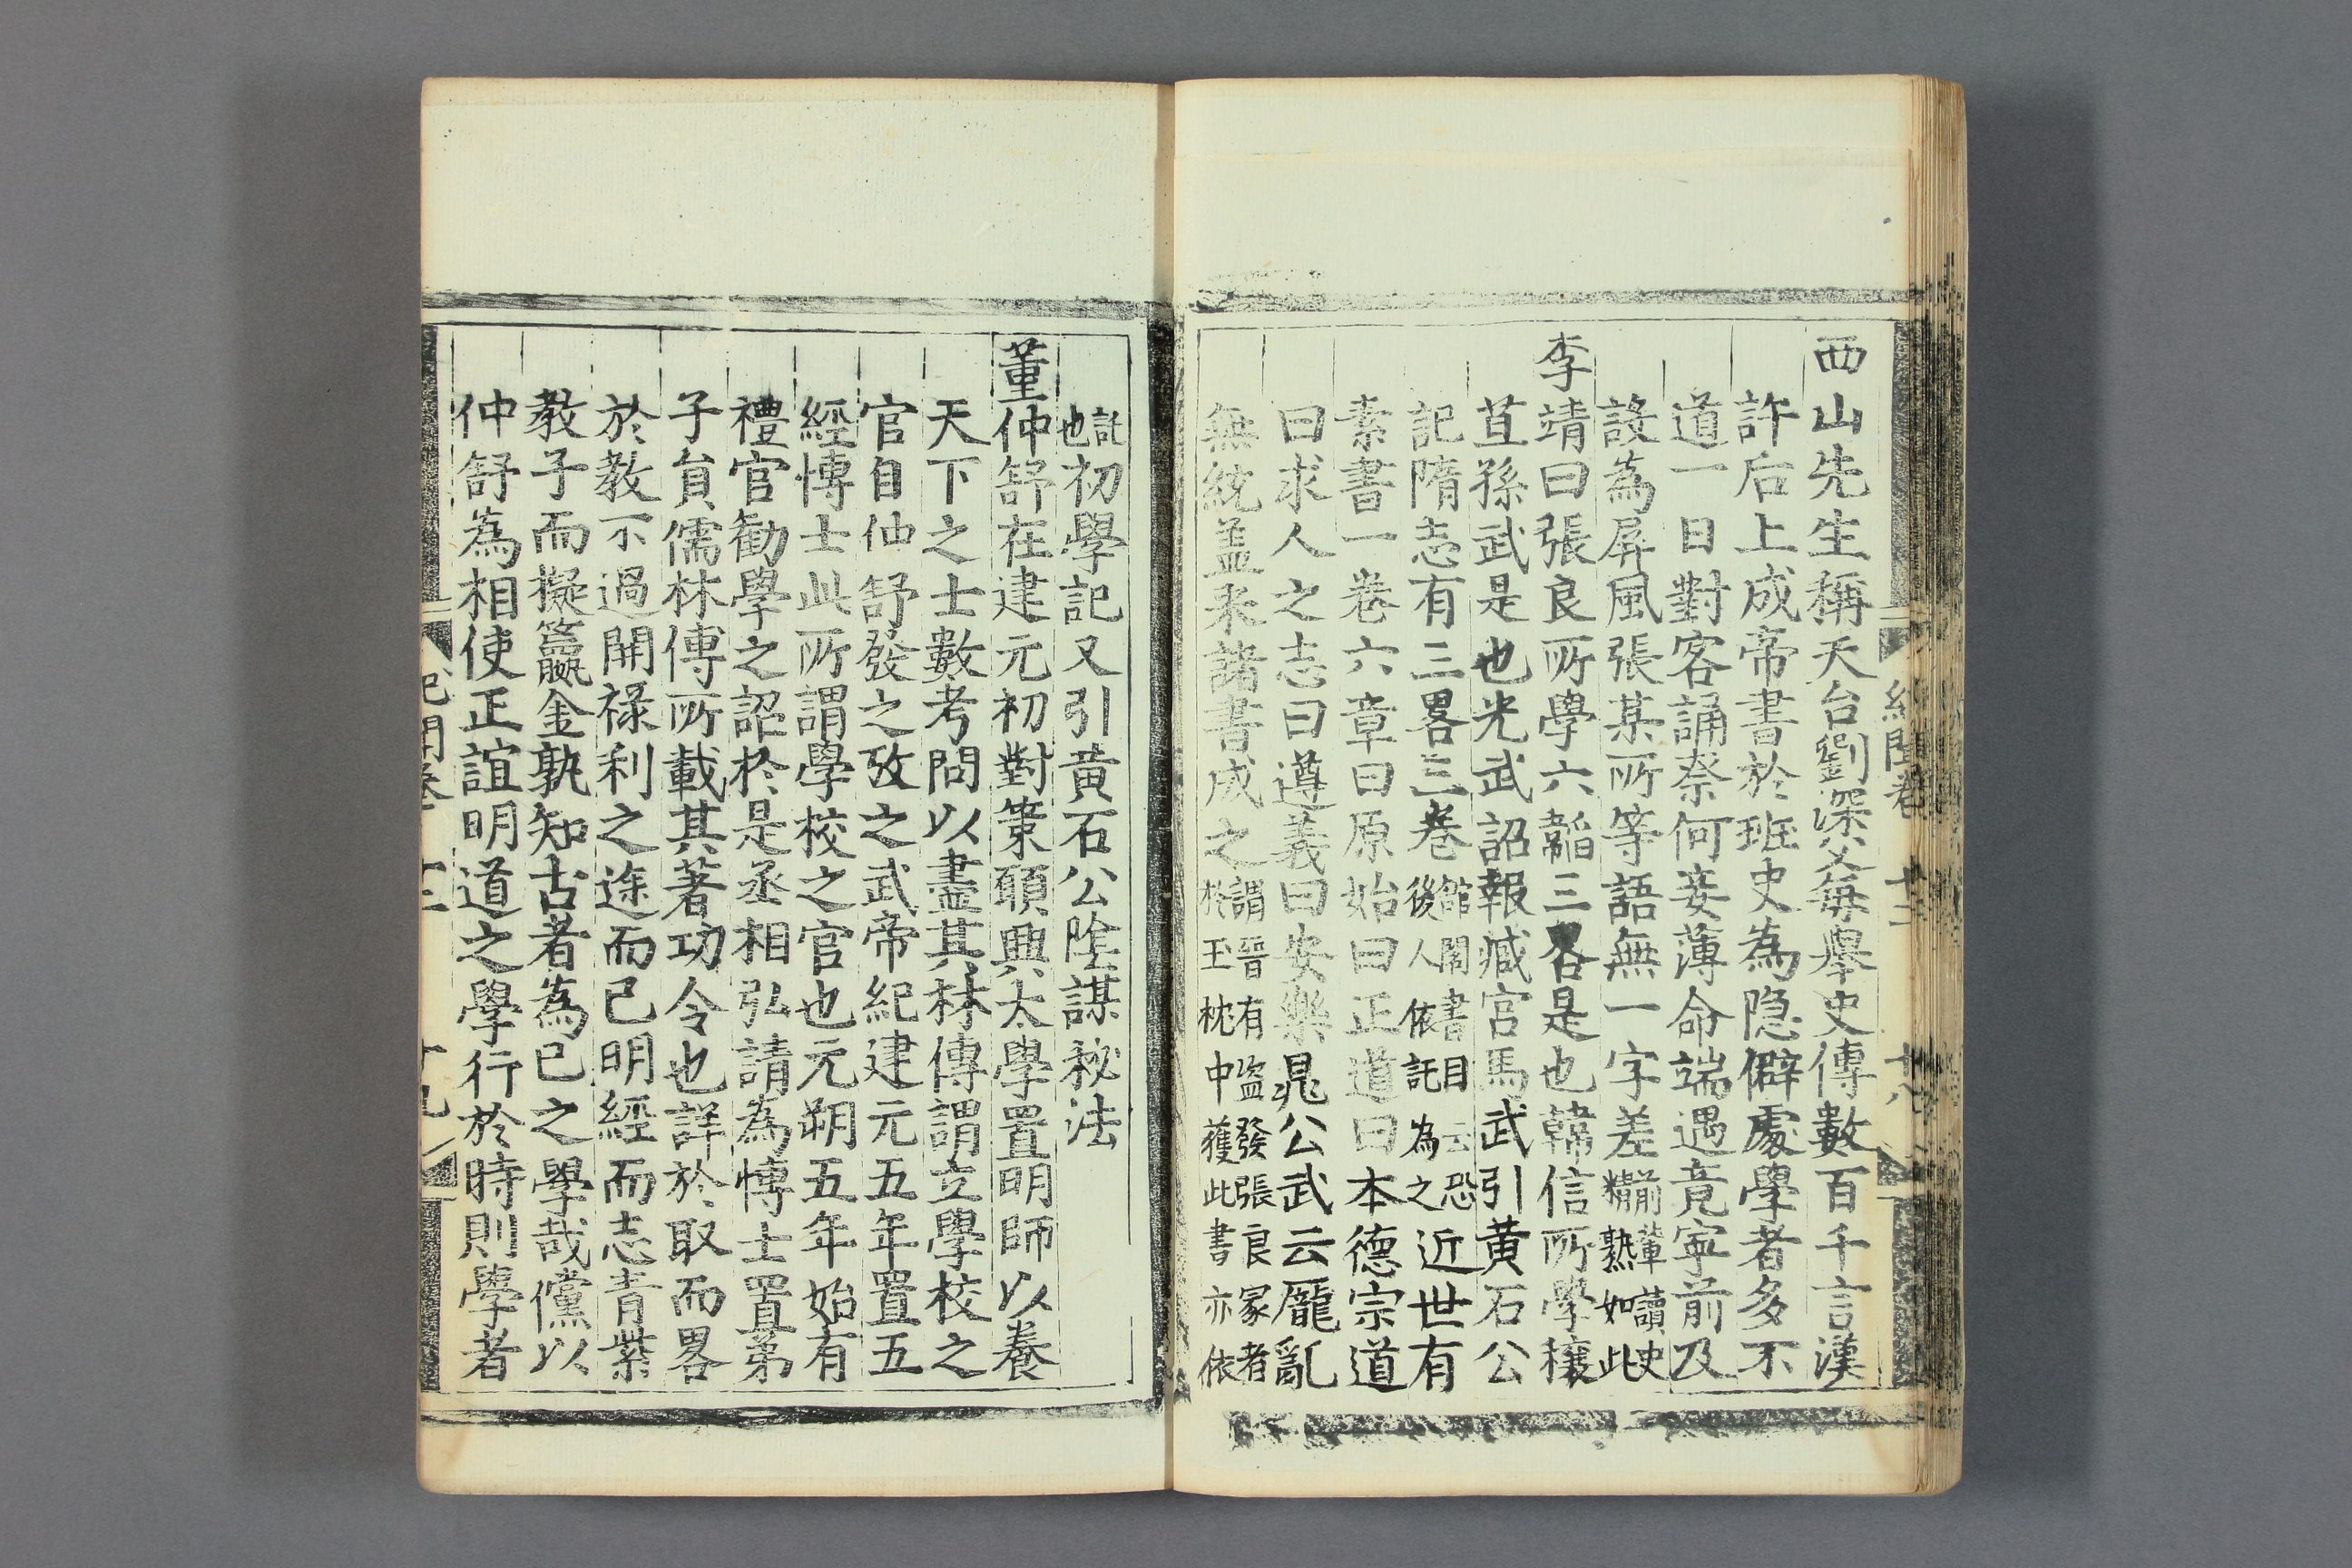 西山先生稱天台劉深父每舉史傳數百千言漢
許后上成帝書於班史為隐僻處學者多不
道一日對客誦柰何妾薄命端遇竟寧前及
設為屏風張某所等語無一字差前輩讀史精熟如此
李靖曰張良所學六韜三畧是也韓信所學穰
苴孫武是也光武詔報臧宫馬武引黄石公
記隋志有三畧三卷館閣書目云恐後人依託為之近世有
素書一卷六章曰原始曰正道曰本德宗道
曰求人之志曰遵義曰安樂晁公武云厖亂
無統盖采諸書成之謂晉有盗發張良冢者於玉枕中獲此書亦依
託也初學記又引黄石公隂謀秘法
董仲舒在建元初對策願興太學置明師以養
天下之士數考問以盡其材傳謂立學校之
官自仲舒發之攷之武帝紀建元五年置五
經愽士此所謂學校之官也元朔五年始有
禮官勸學之詔於是丞相弘請為愽士置弟
子貟儒林傳所載其著功令也詳於取而畧
於教不過開祿利之途而已明經而志青紫
教子而擬籯金孰知古者為已之學哉儻以
仲舒為相使正誼明道之學行於時則學者
紀聞卷 十二 十八
紀聞卷 十二 十九